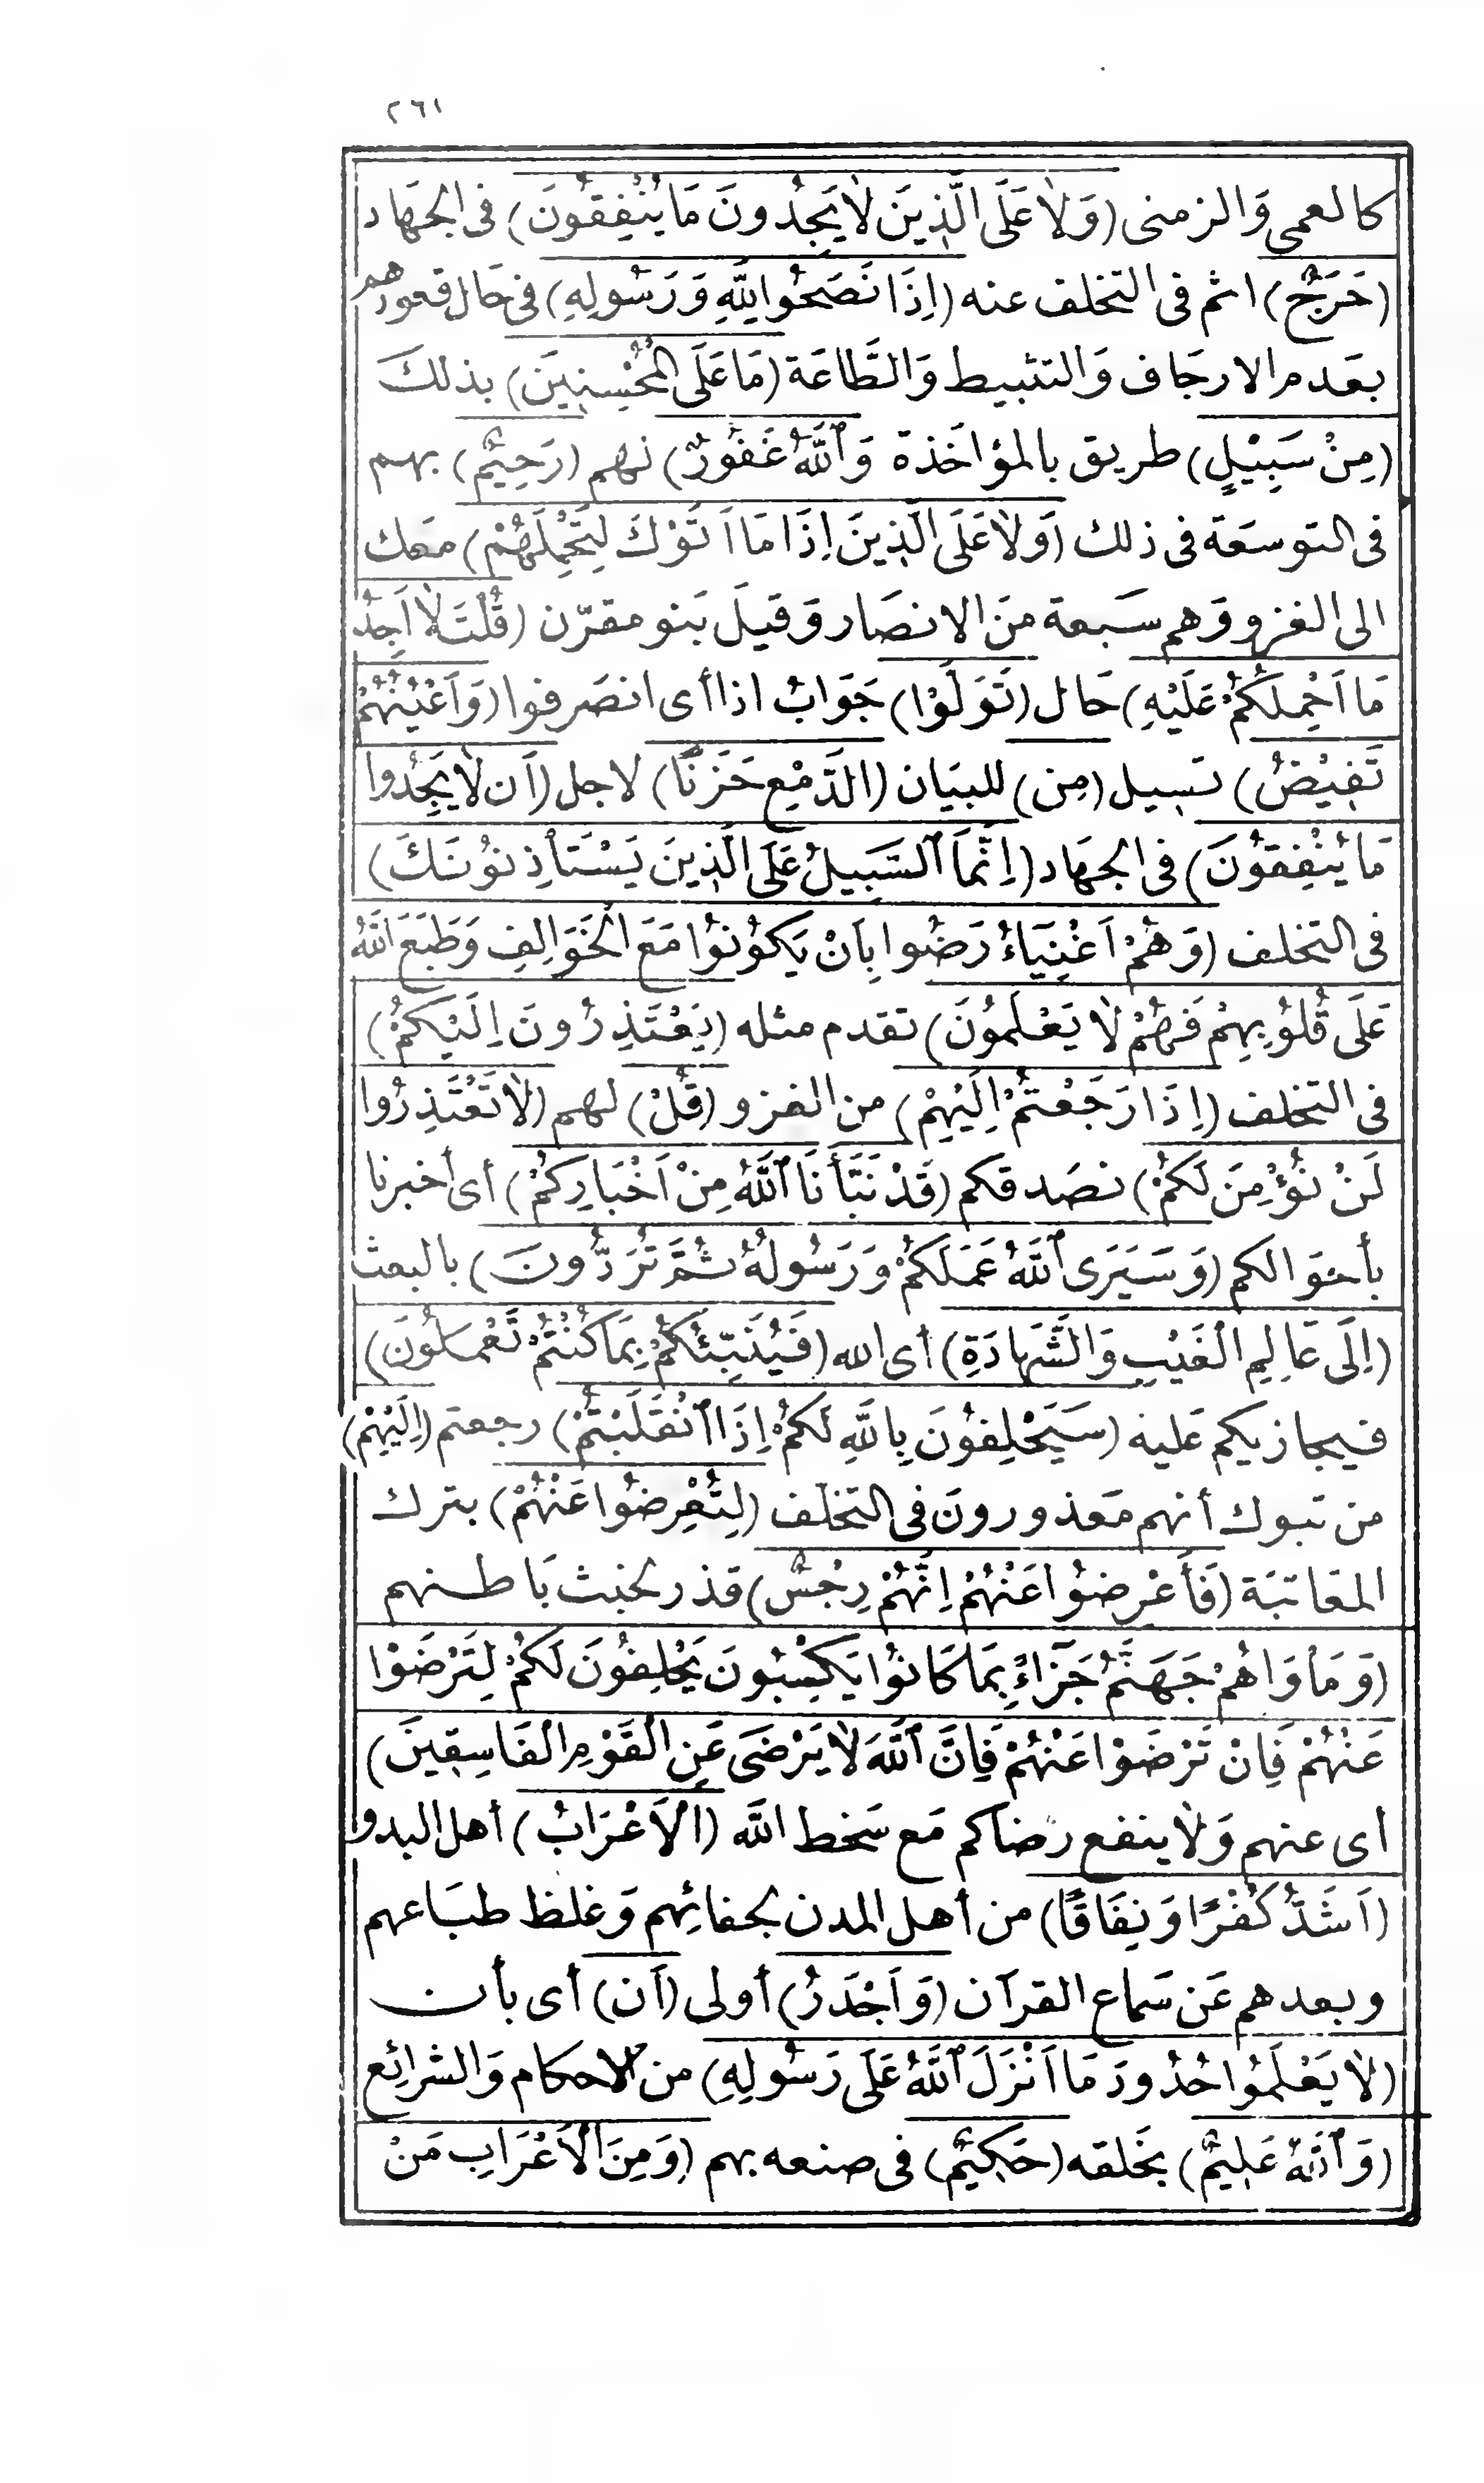 ٢٦١
كالعمى وَالزمنى (وَلَا عَلَى الَّذِينَ لَا يَجِدُونَ مَا يُنْفِقُونَ) فى الجهَاد
(حَرَجٌ) اثم فى التخلف عنه (اِذَا نَصَحُوا لِلَّهِ وَرَسُولِهِ) فى حَال قعودهم
بعَدم الارجَاف وَالتثبيط وَالطَّاعَة (مَا عَلَى الْمُحْسِنِينَ) بذلكَ
(مِنْ سَبِيْلٍ) طريق بالمؤاخَذة وَٱللَّهُ غَفُورٌ) لهم (رَحِيْمٌ) بهم
فى التوسعَة فى ذلك (وَلَا عَلَى الَّذِينَ اِذَا مَا اَتَوْكَ لِتَحْمِلَهُمْ) معَك
الى الغزو وَهم سَبعة منَ الانصَار وَقيلَ بَنو مقرّن (قُلْتَ لَا اَجِدُ
مَا اَحْمِلُكُمْ عَلَيْهِ) حَال (تَوَلَّوْا) جَوَابُ اذا أى انصَرفوا (وَاَعْيُنُهُمْ
تَفِيْضُ) تسيل (مِن) للبيَان (الدَّمْعِ حَزَنًا) لاجل (اَن لَا يَجِدُوا
مَا يُنْفِقوُنَ) فى الجهَاد (اِنَّمَا ٱلسَّبِيلُ عَلَى الَّذِينَ يَسْتَأْذِنوُنَكَ)
فى التخلف (وَهُمْ اَغْنِيَاءُ رَضُوا بِاَنْ يَكُوْنوُا مَعَ الْخَوَالِفِ وَطَبَعَ اللَّهُ
عَلَى قُلُوُبِهِمْ فَهُمْ لَا يَعْلَمُونَ) تقدم مثله (يَعْتَذِرُونَ اِلَيْكُمْ)
فى التخلف (اِذَا رَجَعْتُمْ اِلَيْهِمْ) من الغزو (قُلْ) لهم (لَا تَعْتَذِرُوا
لَنْ نُؤْمِنَ لَكُمْ) نصَدقكم (قَدْ نَبَّأَنَا ٱللَّهُ مِنْ اَخْبَارِكُمْ) أى أخبرنا
بأحوَالكم (وَسَيَرَى ٱللَّهُ عَمَلَكُمْ وَرَسُولُهُ ثُمَّ تُرَدُّونَ) بالبعث
(اِلَى عَالِمِ الْغَيْبِ وَالشَّهَادَةِ) أى الله (فَيُنَبِّئُكُمْ بِمَا كُنْتُمْ تَعْمَلُونَ)
فيجازيكم عَليه (سَيَحْلِفوُنَ بِاللَّهِ لَكُمْ اِذَا ٱنْقَلَبْتُمْ) رجعتم (اِلَيْهِمْ)
من تبوك أنهم مَعذورونَ فى التخلف (لِتُعْرِضُوا عَنْهُمْ) بترك
المعَاتبَة (فَأَعْرِضوُا عَنْهُمْ اِنَّهُمْ رِجْسٌ) قذر لخبث بَاطنهم
(وَمَأْوَاهُمْ جَهَنَّمُ جَزَاءً بِمَا كَانوُا يَكْسِبُونَ يَحْلِفُونَ لَكُمْ لِتَرْضَوْا
عَنْهُمْ فَاِنْ تَرْضَوْا عَنْهُمْ فَاِنَّ ٱللَّهَ لَا يَرْضَى عَنِ الْقَوْمِ الْفَاسِقِينَ)
أى عنهم وَلَا ينفع رضَاكم مَع سَخط اللَّه (الْاَعْرَابُ) أهل البدو
(اَشَدُّ كُفْرًا وَنِفَاقًا) من أهل المدن لجفائِهم وَغلظ طبَاعهم
وبعدهم عَن سَماع القرآن (وَاَجْدَرُ) أولى (اَن) أى بأن
(لَا يَعْلَمُوا حُدُودَ مَا اَنْزَلَ ٱللَّهُ عَلَى رَسُولِهِ) من الاحكام وَالشرائِع
(وَٱللَّهُ عَلِيمٌ) بخَلقه (حَكِيْمٌ) فى صنعه بهم (وَمِنَ الْاَعْرَابِ مَنْ